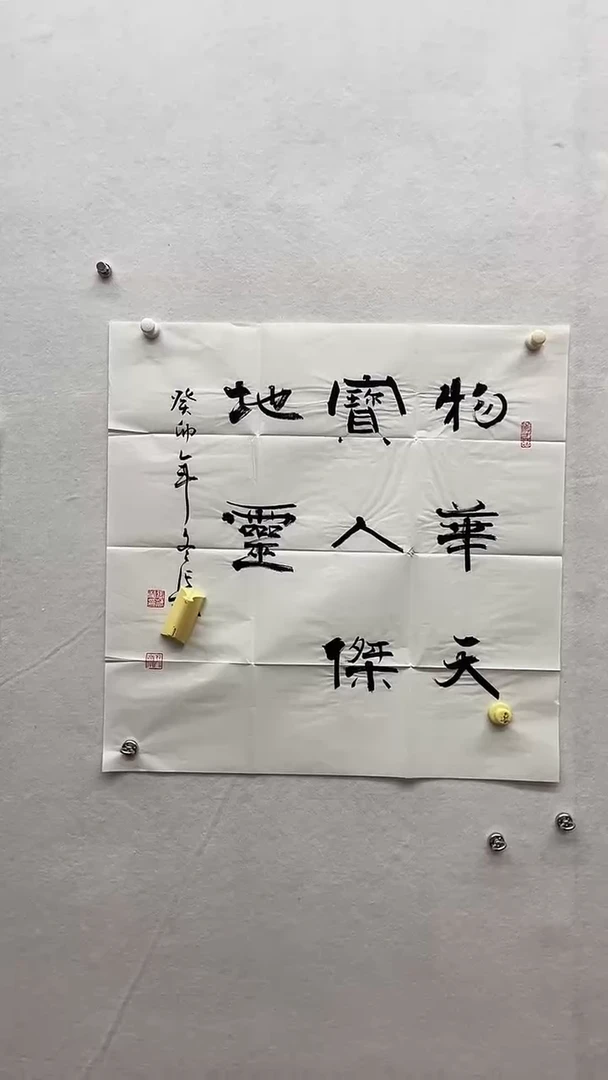 物華天
寶人傑
地靈
癸卯年冬